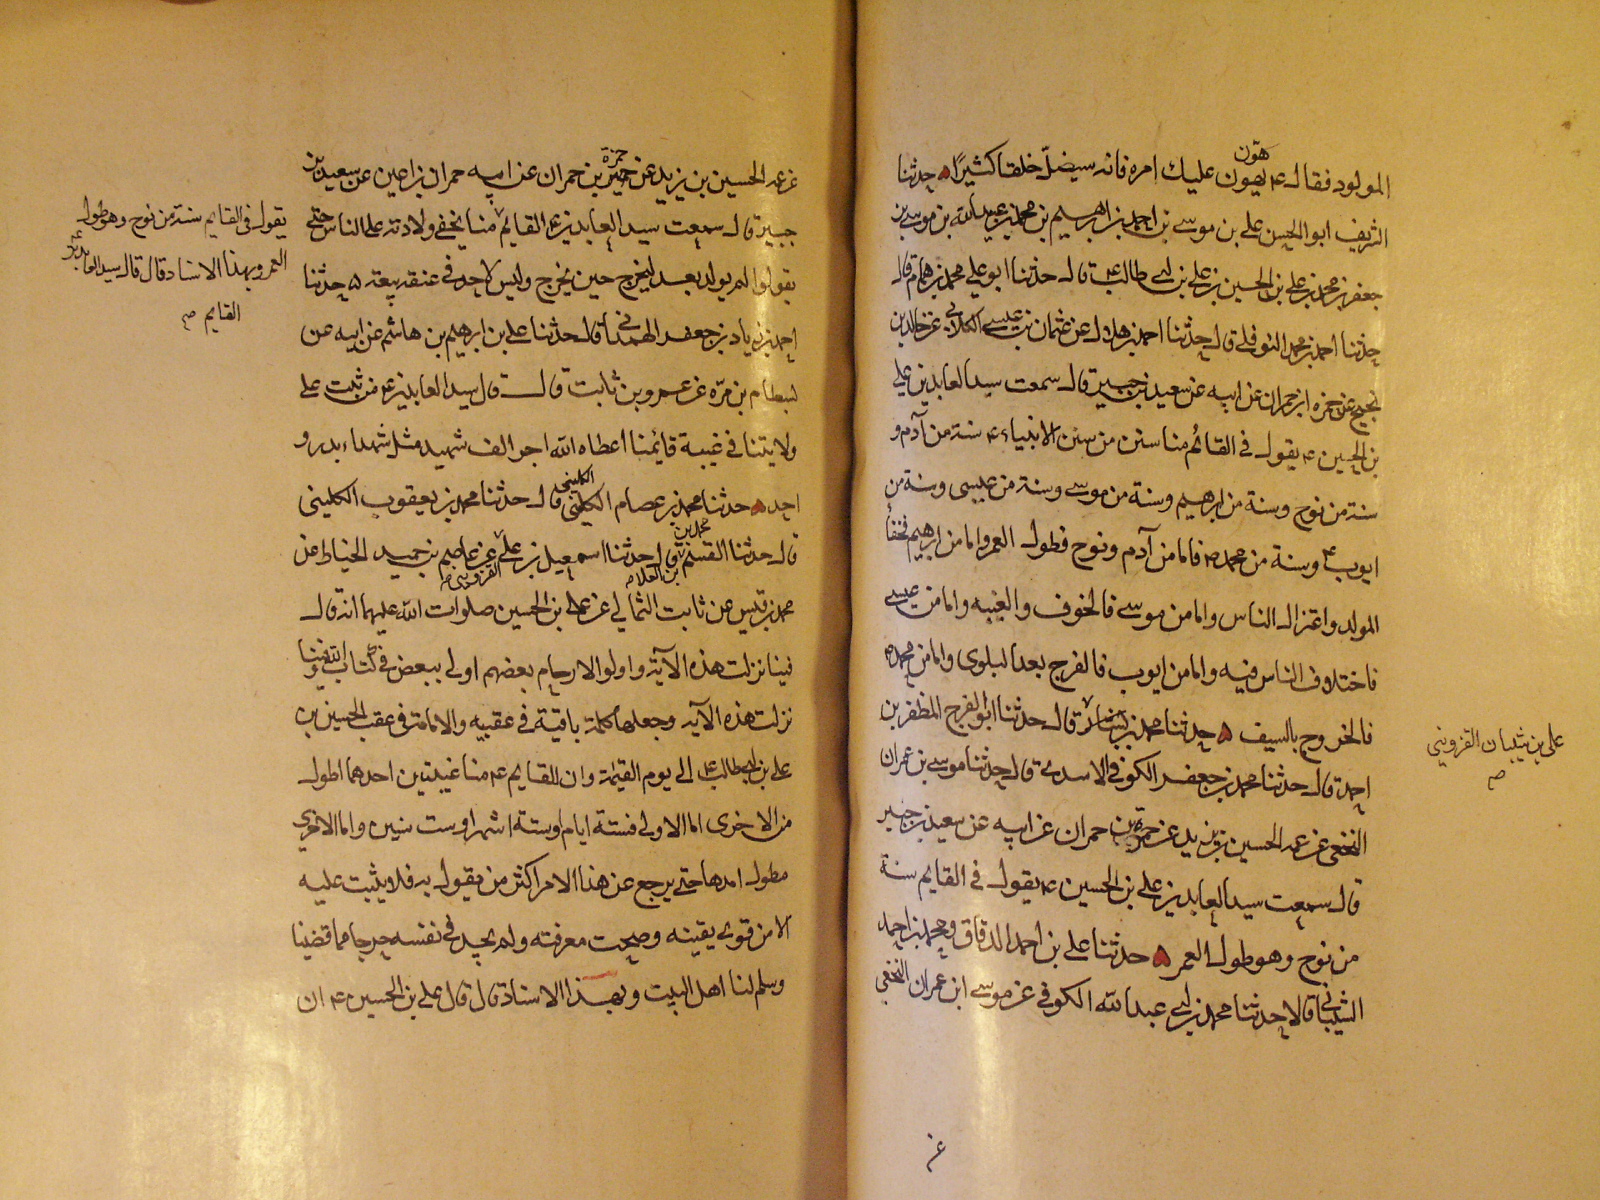 هوّن
المولود فقال ع يهون عليك امره فانه سيضلّ خلقا كثيرًا ه حدثنا
الشريف ابو الحسن علي بن موسى بن احمد بن ابراهيم بن محمد بن عبيد الله بن موسى بن
جعفر بن محمد بن علي بن الحسين بن علي بن ابي طالب ع قال حدثنا ابو علي محمد بن همام قال
حدثنا احمد بن محمد النوفلي قال حدثنا احمد بن هلال عن عثمان بن عيسى الكلابي عن خالد بن
نجيح عن حمزه ابن حمران عن ابيه عن سعيد بن جبير قال سمعت سيد العابدين علي
بن الحسين ع يقول في القائم منا سنن من سنن الانبياء ع سنة من آدم و
سنة من نوح وسنة من ابرهيم وسنة من موسى وسنة من عيسى وسنة من
ايوب ع وسنة من محمد ص فاما من آدم ونوح فطول العمر واما من ابرهيم فخفا
المولد واعتزال الناس واما من موسى فالخوف والغيبه واما من عيسى
فاختلاف الناس فيه واما من ايوب فالفرج بعد البلوى واما من محمد ص
فالخروج بالسيف ه حدثنا محمد بن قال حدثنا ابو الفرج المظفر بن
علي بن القزويني
ص
احمد قال حدثنا محمد بن جعفر الكوفي الاسدي قال حدثنا موسى بن عمران
النخعي عن عمه الحسين بن يزيد عن حمزة بن حمران عن ابيه عن سعيد بن جبير
قال سمعت سيد العابدين علي بن الحسين ع يقول في القايم سنة
من نوح وهو طول العمر ه حدثنا علي بن احمد الدقاق ومحمد بن احمد
الشيباني قالا حدثنا محمد بن ابي عبد الله الكوفي عن موسى ابن عمران النخعي
عن
حمزة
عن عمه الحسين بن يزيد عن بن حمران عن ابيه حمران بن اعين عن سعيد بن
جبير قال سمعت سيد العابدين ع القائم منا يخفى ولادته على الناس حتى
يقولوا لم يولد بعد ليخرج حين يخرج وليس لاحد في عنقه بيعة ه حدثنا
يقول في القايم سنة من نوح وهو طول
العمر وبهذا الاسناد قال قال سيد العابدين ع
القايم ص
احمد بن زياد بن جعفر الهمداني قال حدثنا علي بن ابرهيم بن هاشم عن ابيه عن
بسطام بن مرّه عن عمرو بن ثابت قال قال سيد العابدين ع من ثبت على
ولايتنا في غيبة قائمنا اعطاه الله اجر الف شهيد مثل شهداء بدر و
الكليني
احد ه حدثنا محمد بن عصام الكليني قال حدثنا محمد بن يعقوب الكليني
محمد بن
قال حدثنا القسم بن العلا قال حدثنا اسمعيل بن علي عن عاصم بن حميد الحناط عن
بن العلا ص
القزويني ص
محمد بن قيس عن ثابت الثمالي عن علي بن الحسين صلوات الله عليهما انه قال
فينا نزلت هذه الآية واولوا الارحام بعضهم اولى ببعض في كتاب الله وفينا
نزلت هذه الآيه وجعلها كلمة باقية في عقبيه والامامة في عقب الحسين بن
علي بن ابيطالب ع الى يوم القيمة وان للقايم ع منا غيبتين احدهما اطول
من الاخرى اما الاولى فستة ايام او ستة اشهر او ست سنين واما الاخرى
فطول امدها حتى يرجع عن هذا الامر اكثر من يقول به فلا يثبت عليه
الا من قوى يقينه وصحت معرفته ولم يجد في نفسه حرجا مما قضينا
وسلم لنا اهل البيت وبهذا الاسناد قال قال علي بن الحسين ع ان